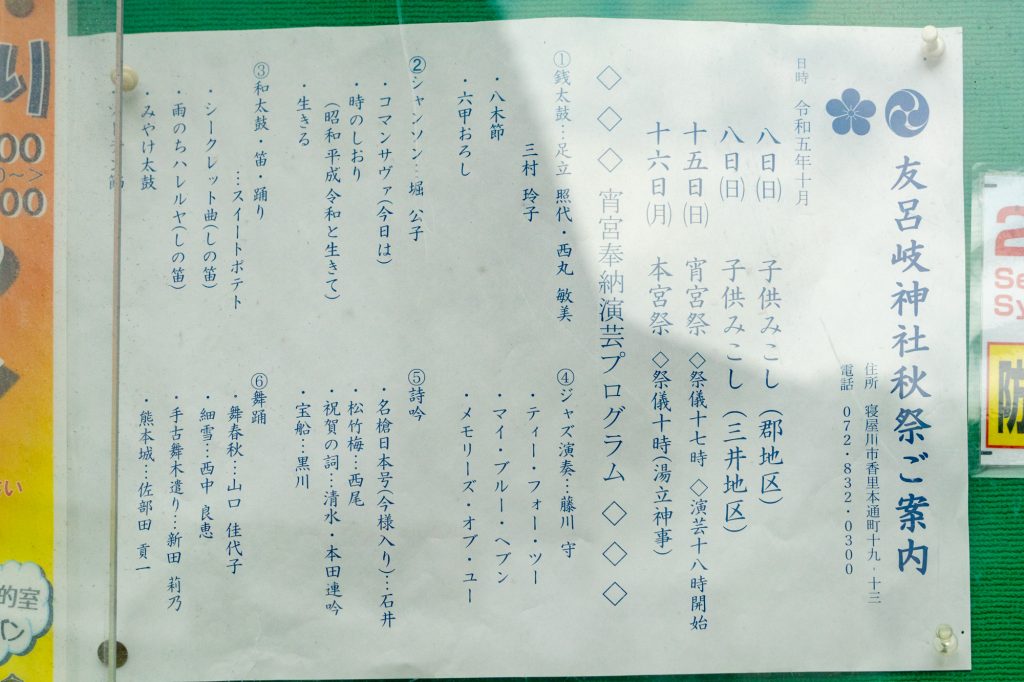 友呂岐神社秋祭ご案内
住所 寝屋川市香里本通町十九・十三
電話 072・832・0300
日時 令和五年十月
八日(日) 子供みこし(郡地区)
八日(日) 子供みこし(三井地区)
十五日(日) 宵宮祭 ◇祭儀十七時 ◇演芸十八時開始
十六日(月) 本宮祭 ◇祭儀十時(湯立神事)
◇◇◇宵宮奉納演芸プログラム◇◇◇
①銭太鼓…足立 照代・西丸 敏美
三村 玲子
・八木節
・六甲おろし
②シャンソン…堀 公子
・コマンサヴァ(今日は)
・時のしおり
(昭和 平成 令和と生きて)
・生きる
③和太鼓・笛・踊り
…スイートポテト
・シークレット曲(しの笛)
・雨のちハレルヤ(しの笛)
・みやけ太鼓
④ジャズ演奏…藤川 守
・ティー・フォー・ツー
・マイ・ブルー・ヘブン
・メモリーズ・オブ・ユー
⑤詩吟
・名槍日本号(今様入り)…石井
・松竹梅…西尾
・祝賀の詞…清水・本田連吟
・宝船…黒川
⑥舞踊
・舞春秋…山口 佳代子
・細雪…西中 良恵
・手古舞木遣り…新田 莉乃
・熊本城…佐部田 貢一
り
00
00
的室
パン
2
Se
Sy
防